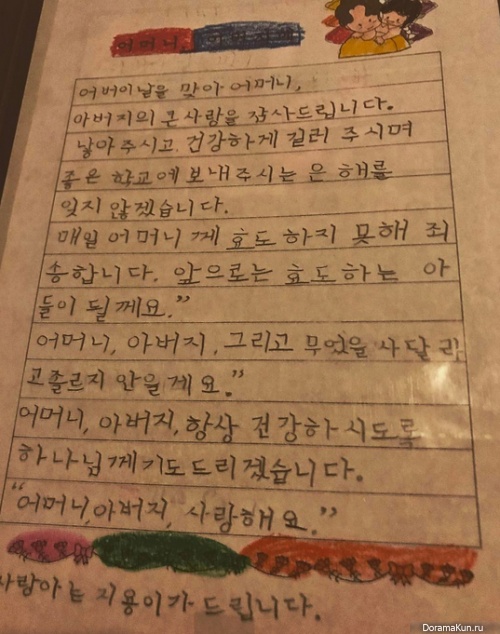 어머니,
어버이날을 맞아 어머니,
아버지의 큰사랑을 감사드립니다.
낳아주시고 건강하게 길러 주시며
좋은 학교에 보내주시는 은 해를
잊지 않겠습니다.
매일 어머니께 효도 하지 못해 죄
송합니다. 앞으로는 효도하는 아
들이 될께요."
어머니, 아버지, 그리고 무엇을 사달라
고졸르지 안을게요."
어머니, 아버지, 항상 건강하시도록
하나님께기도드리겠습니다.
"어머니,아버지, 사랑해요."
지용이가 드립니다.
DoramaKun.ru